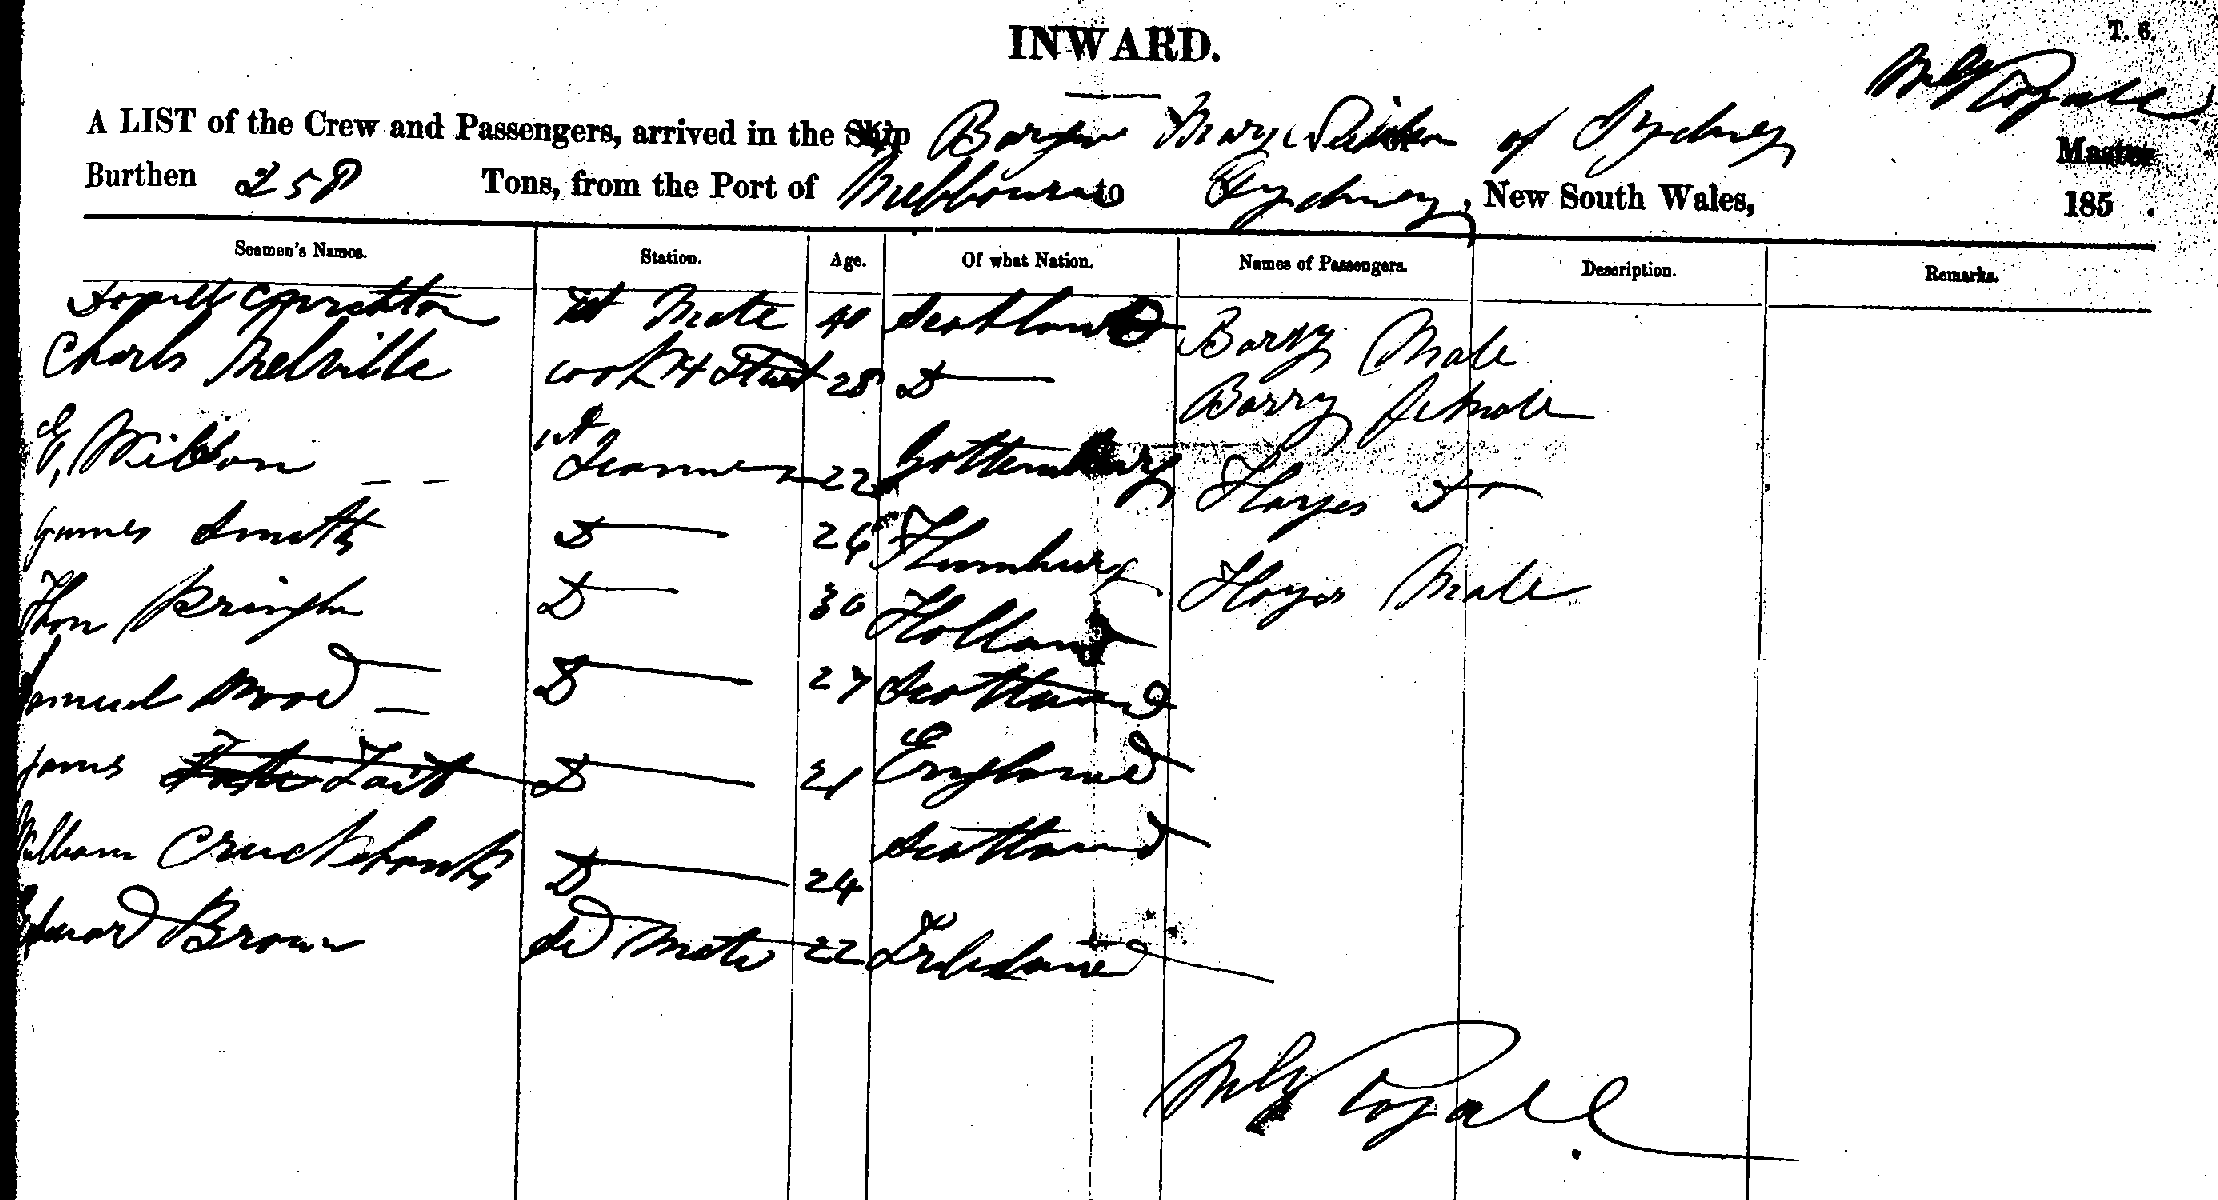 INWARD.
T. 6.
A LIST of the Crew and Passengers, arrived in the Ship Barque Mary of Sydney Master
Burthen 258 Tons, from the Port of Melbourne to Sydney, New South Wales, 185 .
Seamen's Names. Station. Age. Of what Nation. Names of Passengers. Description. Remarks.
Mate 40 Scotland Barry Male
Charls Melville cook & Stuet 28 D Barry female
E, Wilson 1st Seamen 22 Gottemburg Hayes D
James Smith D 26 Hamburg Hayes Male
Thon D 30 Holland
Samuel Wood D 27 Scotland
James Tait D 21 England
William Cruckshanks D 24 Scotland
Edward Brown Mate 22